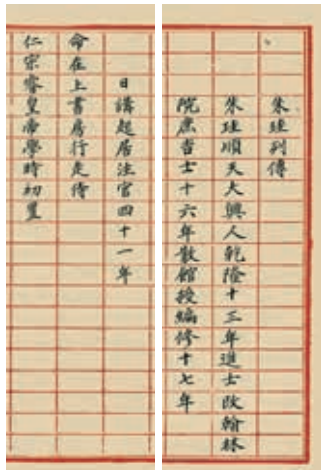 朱珪列傳
朱珪順天大興人乾隆十三年進士改翰林
院庶吉士十六年散館授編修十七年
日講起居注官四十一年
命在上書房行走侍
仁宗睿皇帝學時初置